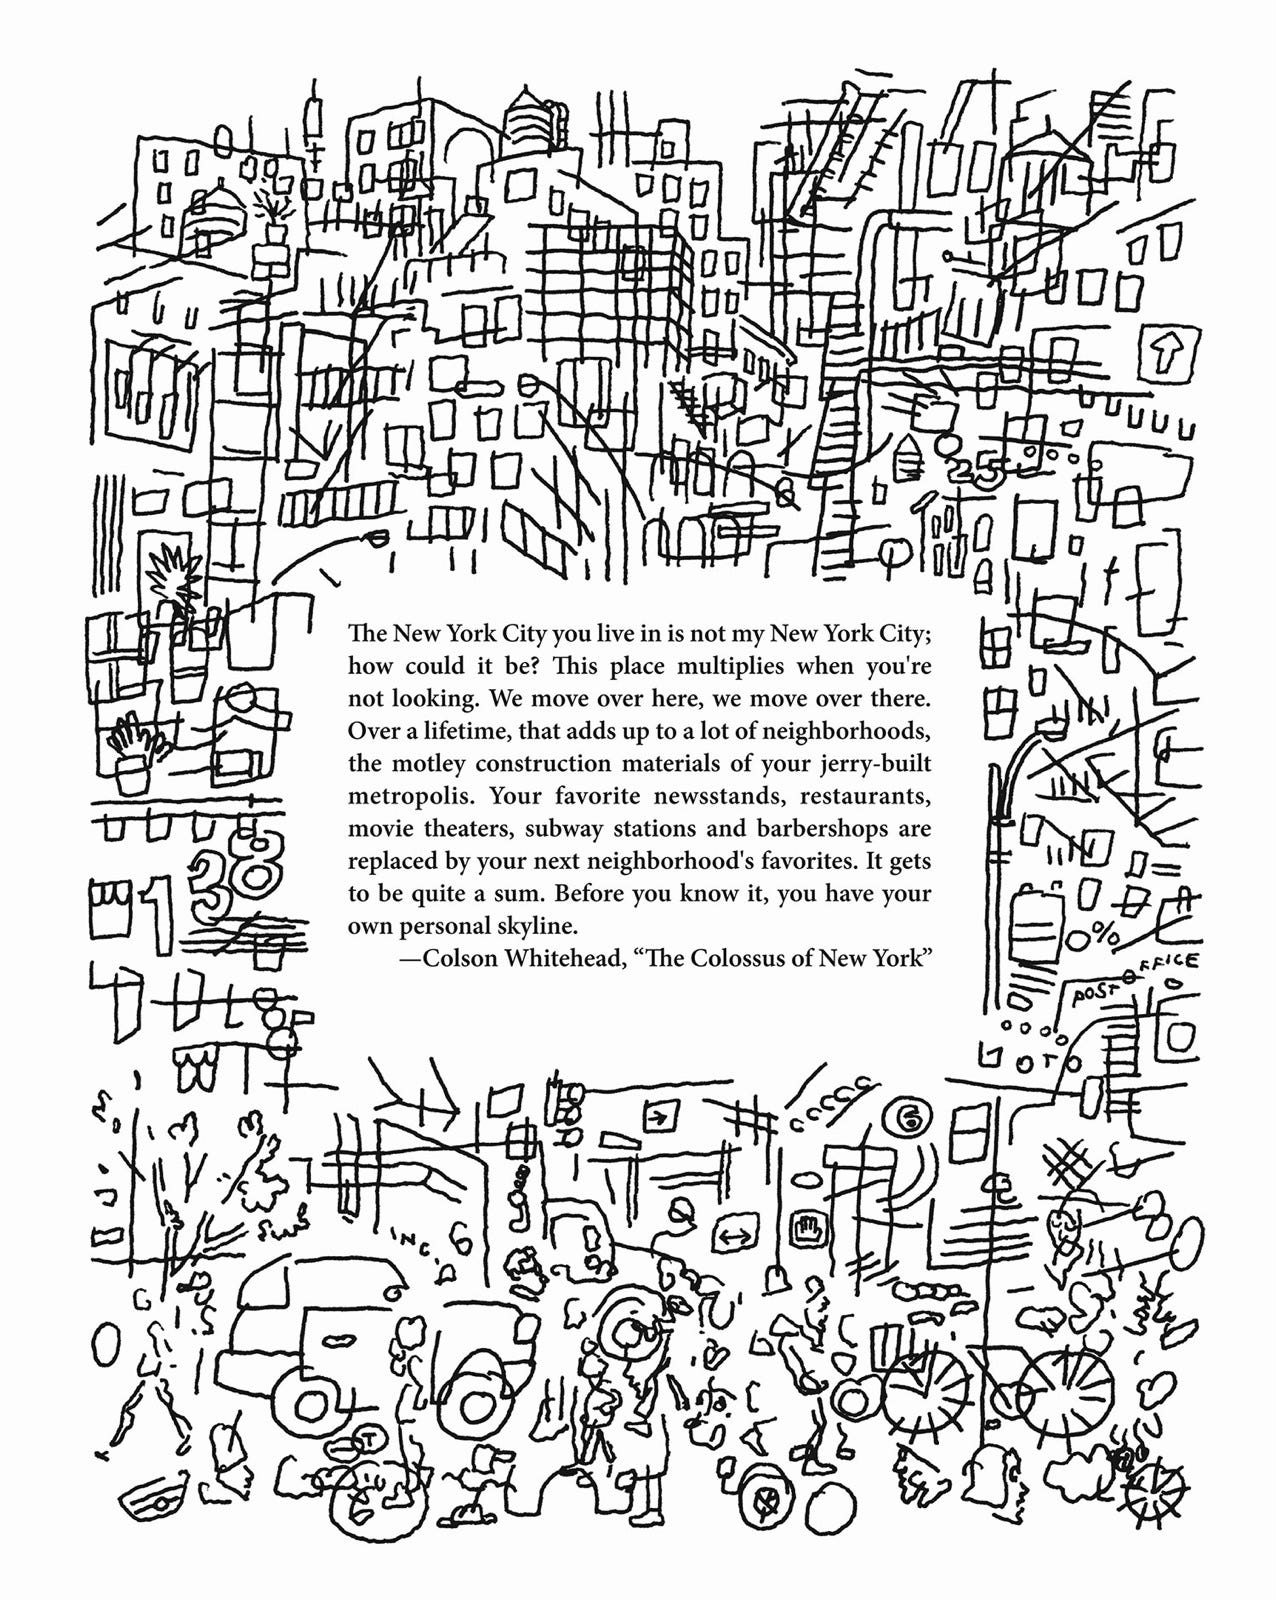 25
The New York City you live in is not my New York City;
how could it be? This place multiplies when you're
not looking. We move over here, we move over there.
Over a lifetime, that adds up to a lot of neighborhoods,
the motley construction materials of your jerry-built
metropolis. Your favorite newsstands, restaurants,
movie theaters, subway stations and barbershops are
replaced by your next neighborhood's favorites. It gets
to be quite a sum. Before you know it, you have your
own personal skyline.
—Colson Whitehead, “The Colossus of New York”
138
%
POST OFFICE
LOTO
6
INC.
T